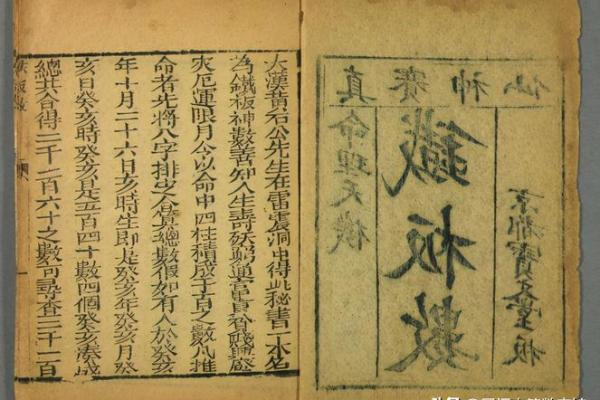 真賽神仙
京都寶文堂板
鐵板數
命理天機
大漢黃石公先生在雷震洞中得此秘書一本名
為鐵板神數善知人生壽殀窮通富貴貧賤興盛
灾厄運限月令以命中四柱積成于百之數凡推
命者先將八字排定合算其總數假如有人於癸亥
年十月二十六日亥時生即是癸亥年癸亥月癸
亥日癸亥時癸亥是五百四十數四個癸亥湊成
總共合得二千一百六十之數可尋查二千一百